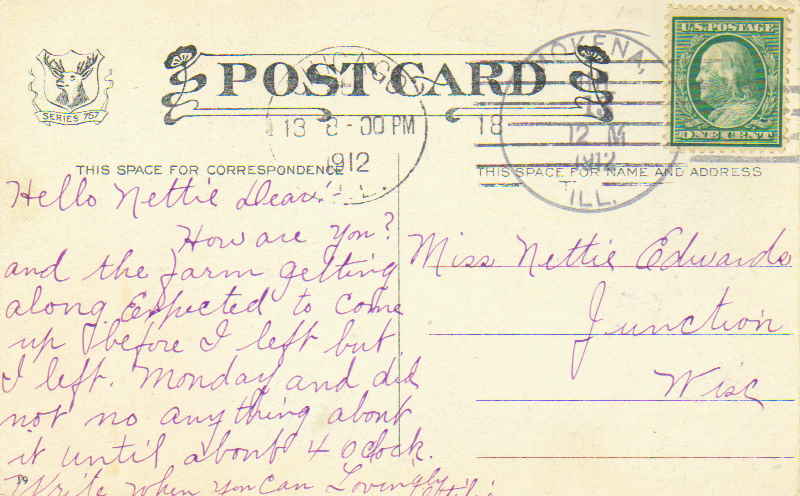 POST CARD
SERIES 757
U.S. POSTAGE
ONE CENT
CHICAGO
13 8-00 PM
1912
ILL.
18
MOKENA,
12 M
1912
ILL.
THIS SPACE FOR CORRESPONDENCE
THIS SPACE FOR NAME AND ADDRESS
Hello Nettie Dear:
How are you?
and the farm getting
along Expected to come
up before I left but
I left. Monday and did
not no anything about
it until about 4 oclock.
Write when you can Lovingly
Miss Nettie Edwards
Junction
Wisc